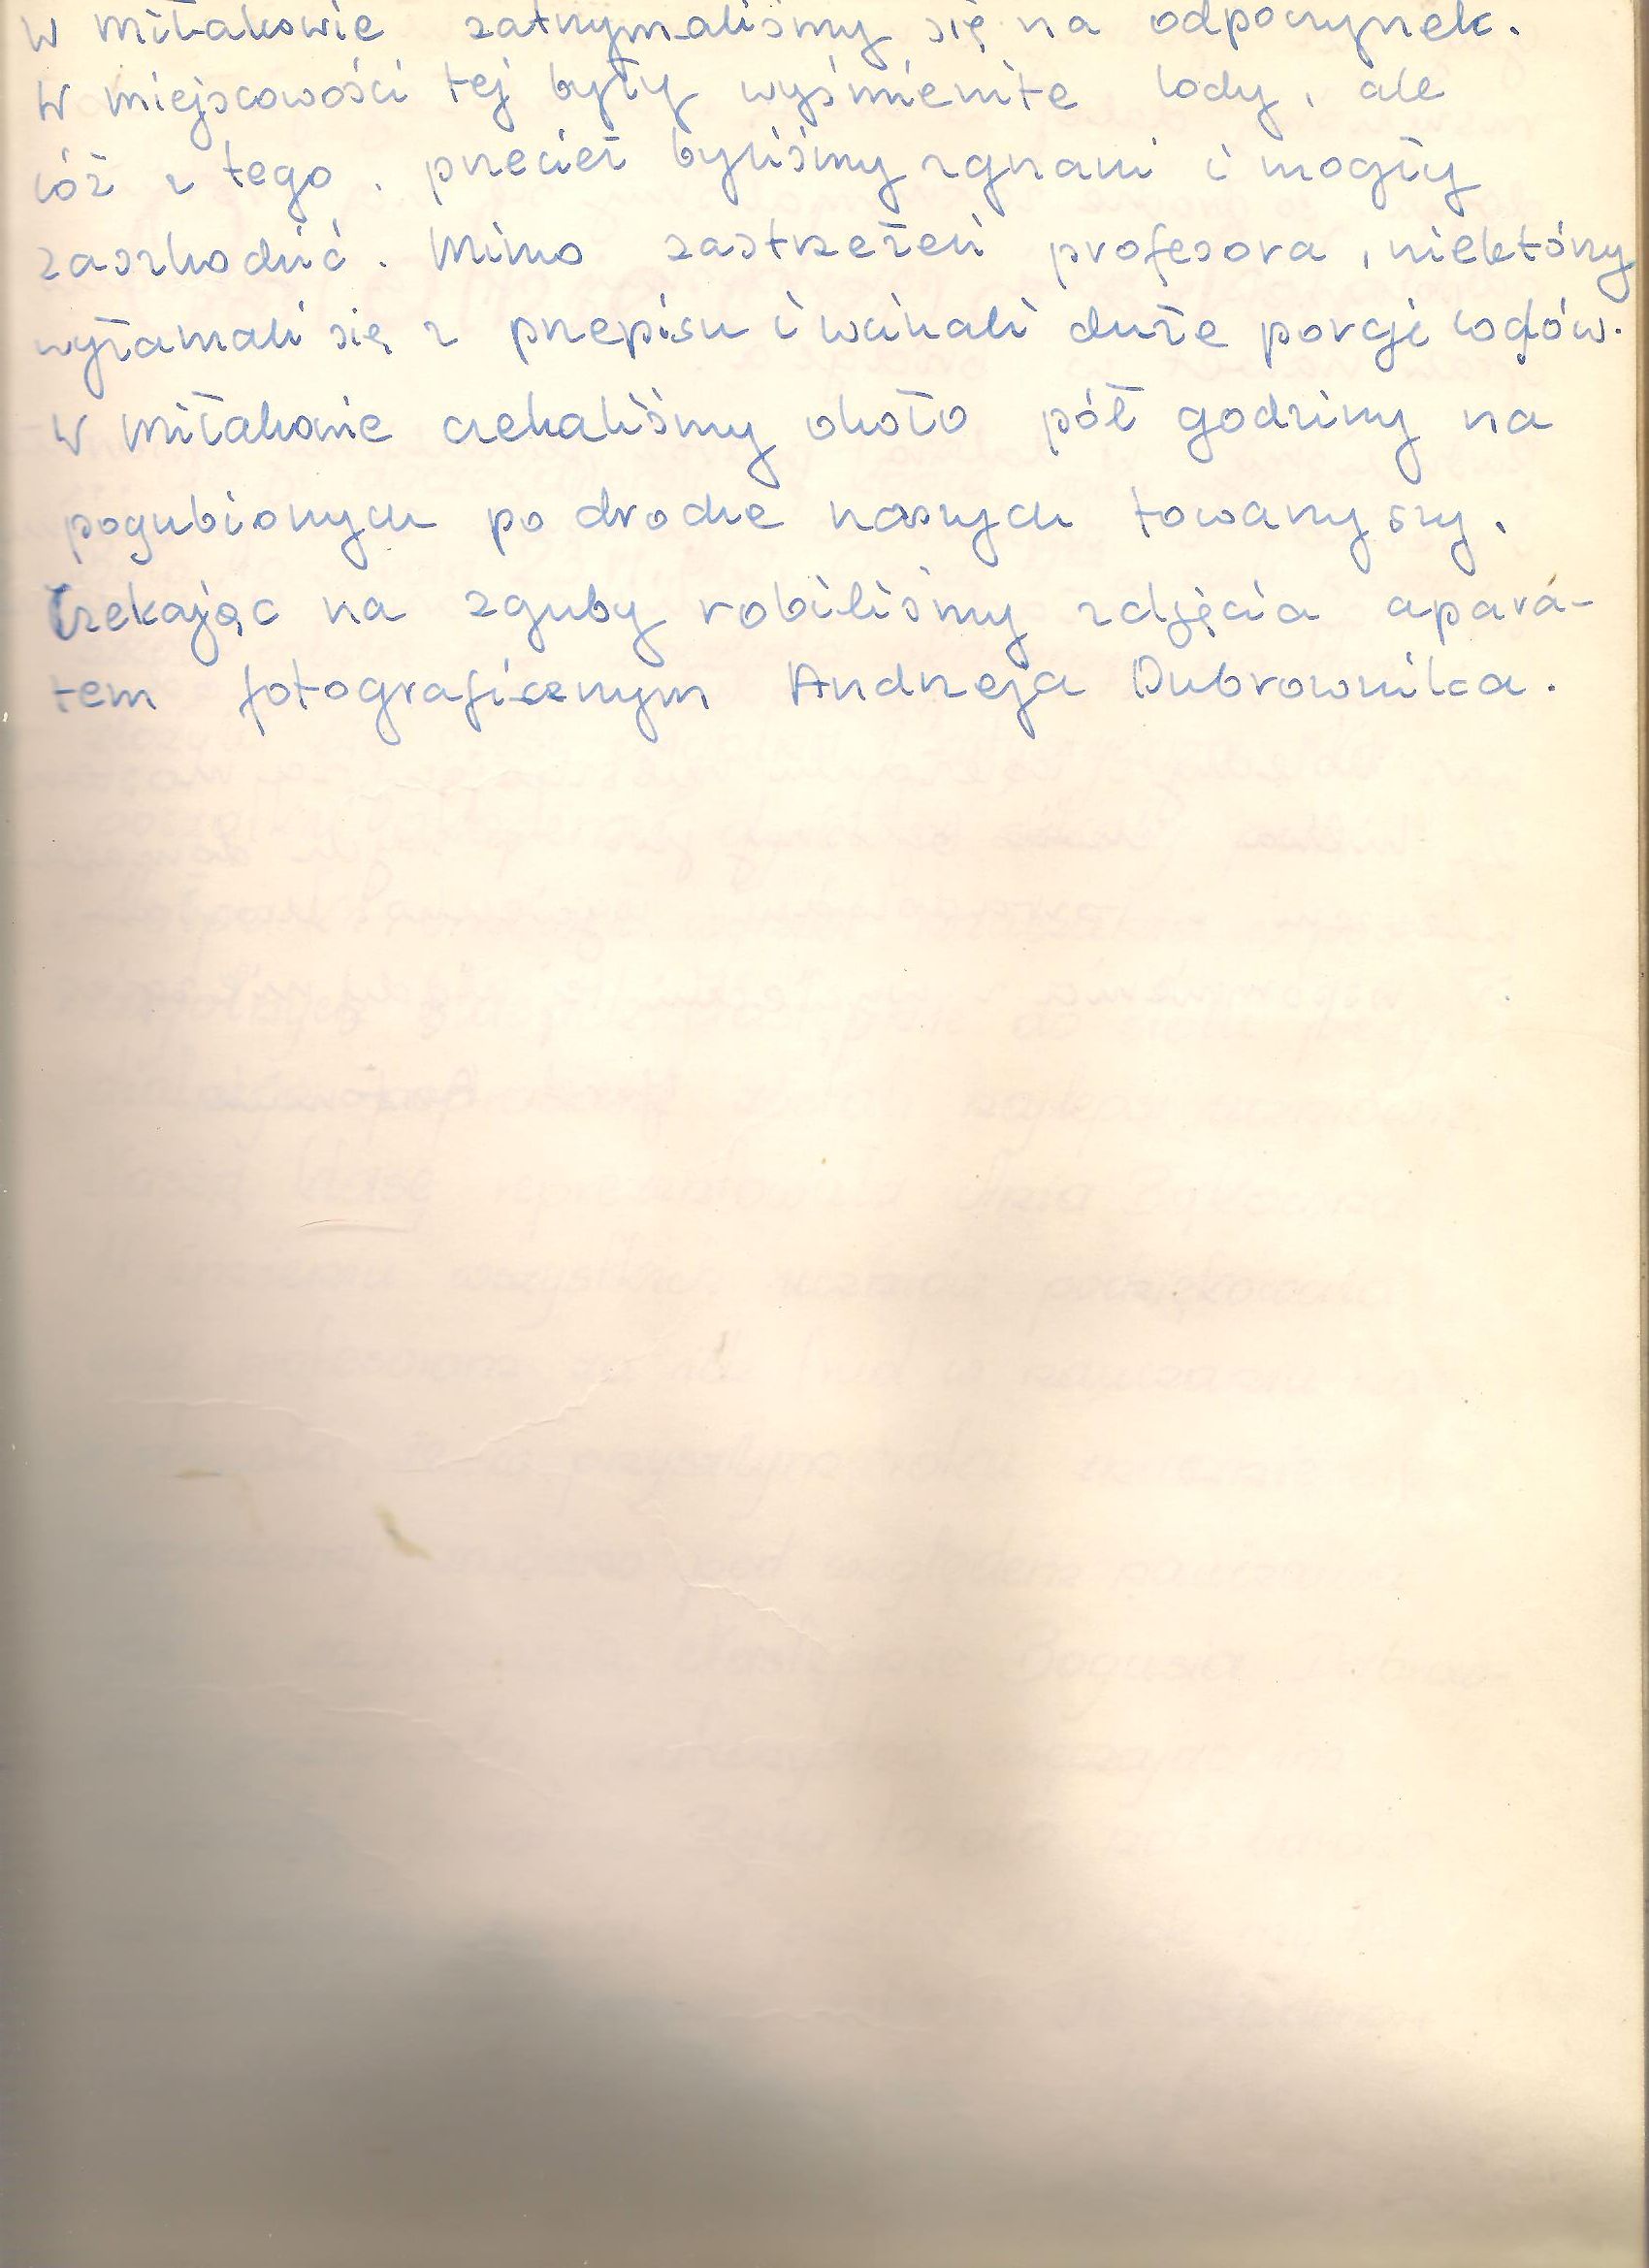 W Miłakowie zatrzymaliśmy się na odpoczynek.
W miejscowości tej były wyśmienite lody, ale
cóż z tego, przecież byliśmy zgrzani i mogły
zaszkodzić. Mimo zastrzeżeń profesora, niektórzy
wyłamali się z przepisu i wcinali duże porcje lodów.
W Miłakowie czekaliśmy około pół godziny na
pogubionych po drodze naszych towarzyszy.
Czekając na zguby robiliśmy zdjęcia apara-
tem fotograficznym Andrzeja Dubrownika.